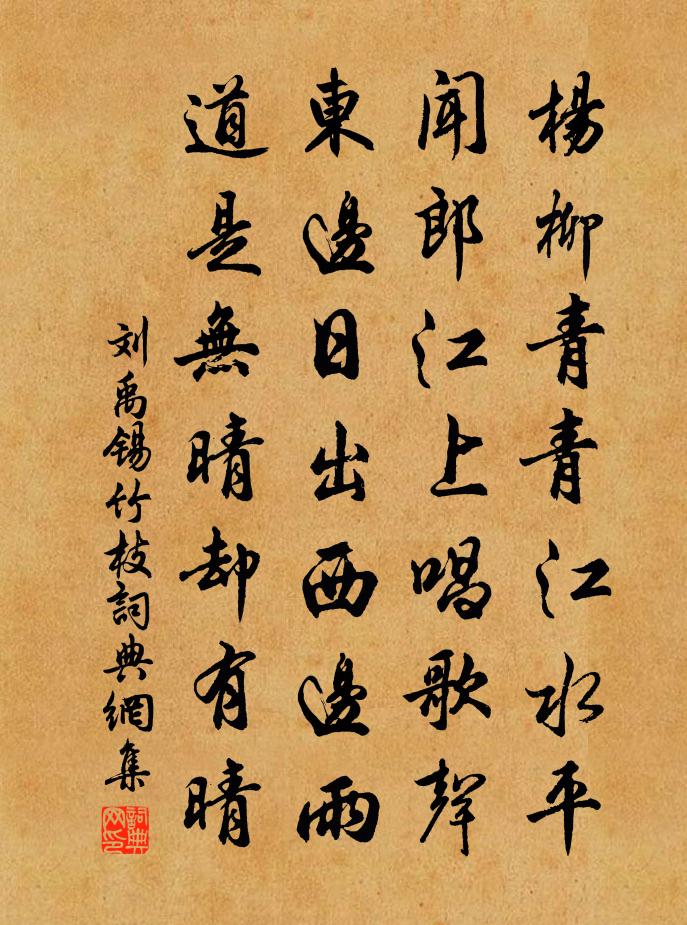 楊柳青青江水平
聞郎江上唱歌聲
東邊日出西邊雨
道是無晴却有晴
刘禹錫竹枝詞典網集
詞典网印